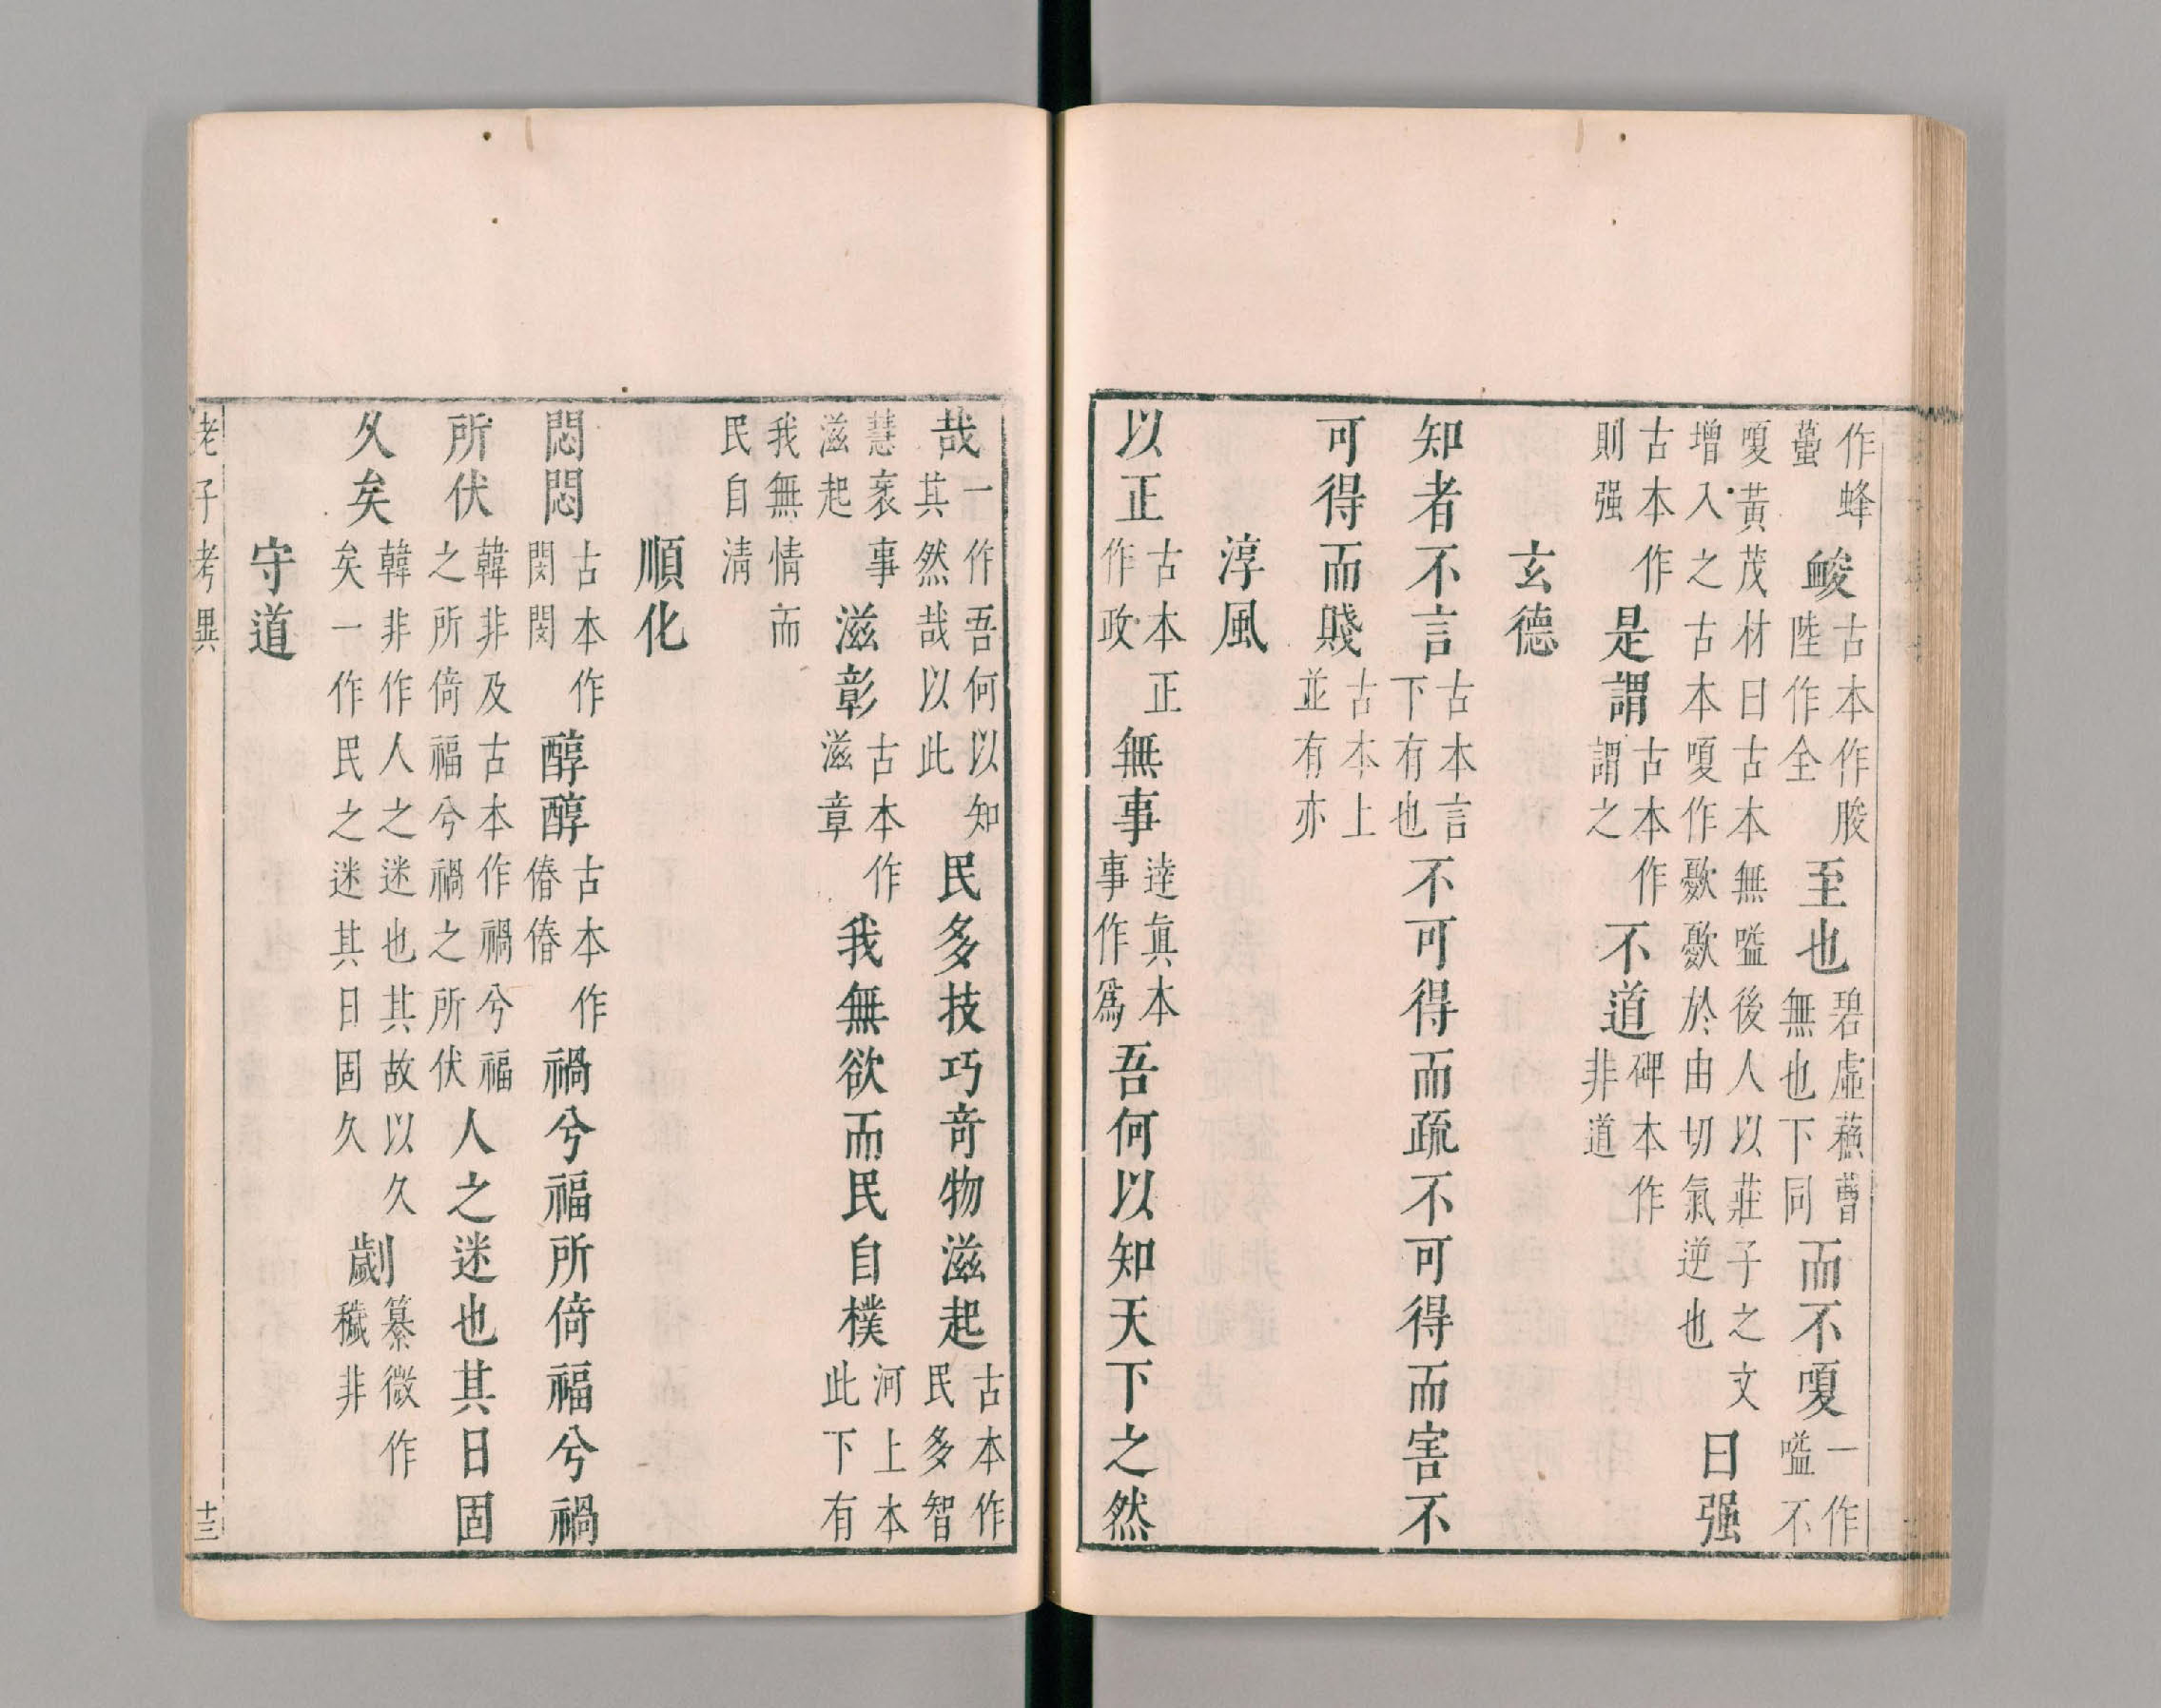 作蜂蠆䘒古本作朘陸作全至也碧虛蘇曹無也下同而不嗄一作嗌不
嗄黃茂材曰古本無嗌後人以莊子之文增入之古本嗄作㱊㱊於由切氣逆也曰强
古本作則强是謂古本作謂之不道碑本作非道
玄德
知者不言古本言下有也不可得而疏不可得而害不
可得而賤古本上並有亦
淳風
以正古本正作政無事達眞本事作爲吾何以知天下之然
哉一作吾何以知其然哉以此民多技巧竒物滋起古本作民多智
慧衺事滋起滋彰古本作滋章我無欲而民自樸河上本此下有
我無情而民自清
順化
悶悶古本作閔閔醇醇古本作偆偆禍兮福所倚福兮禍
所伏韓非及古本作禍兮福之所倚福兮禍之所伏人之迷也其日固
久矣韓非作人之迷也其故以久矣一作民之迷其日固久劌纂微作穢非
守道
老子考異
十三